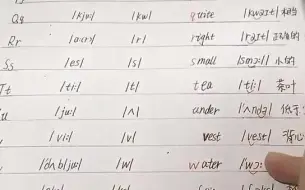 Qq /kju:/ /kw/ quite /kwaɪt/ 相当
Rr /a:r/ /r/ right /raɪt/ 正确的
Ss /es/ /s/ small /smɔ:l/ 小的
Tt /ti:/ /t/ tea /ti:/ 茶叶
u /ju:/ /ʌ/ under /ʌndə/ 低于
/vi:/ /v/ vest /vest/ 背心
/dʌblju:/ /w/ water /wɔ: